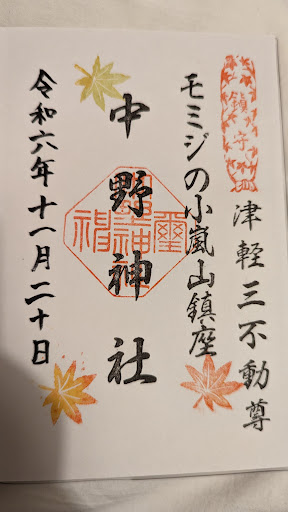 鎮守
津軽三不動尊
モミジの小嵐山鎮座
中野神社
令和六年十一月二十日